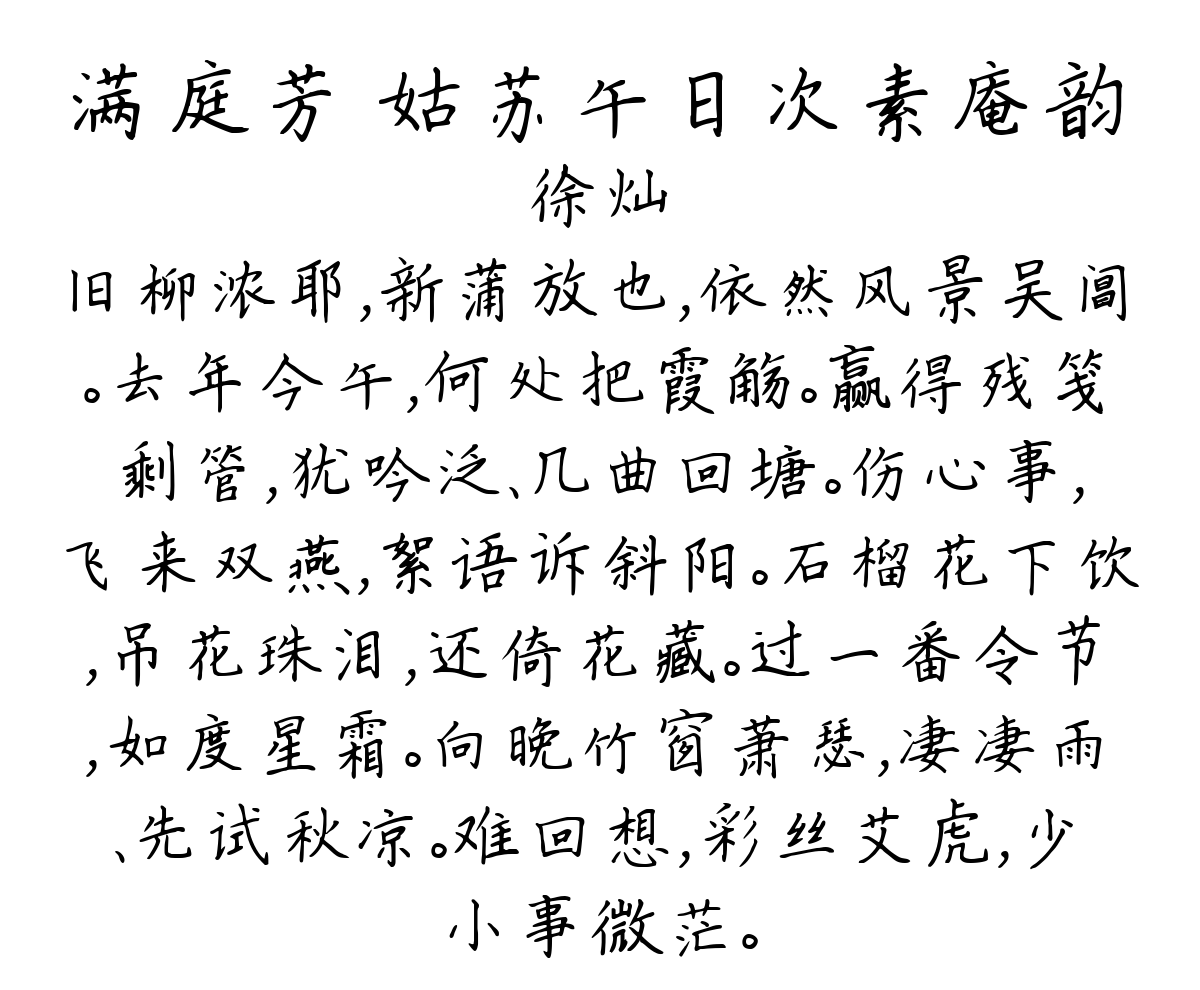 满庭芳 姑苏午日次素庵韵
徐灿
旧柳浓耶,新蒲放也,依然风景吴阊
。去年今午,何处把霞觞。赢得残笺
剩管,犹吟泛、几曲回塘。伤心事,
飞来双燕,絮语诉斜阳。石榴花下饮
,吊花珠泪,还倚花藏。过一番令节
,如度星霜。向晚竹窗萧瑟,凄凄雨
、先试秋凉。难回想,彩丝艾虎,少
小事微茫。